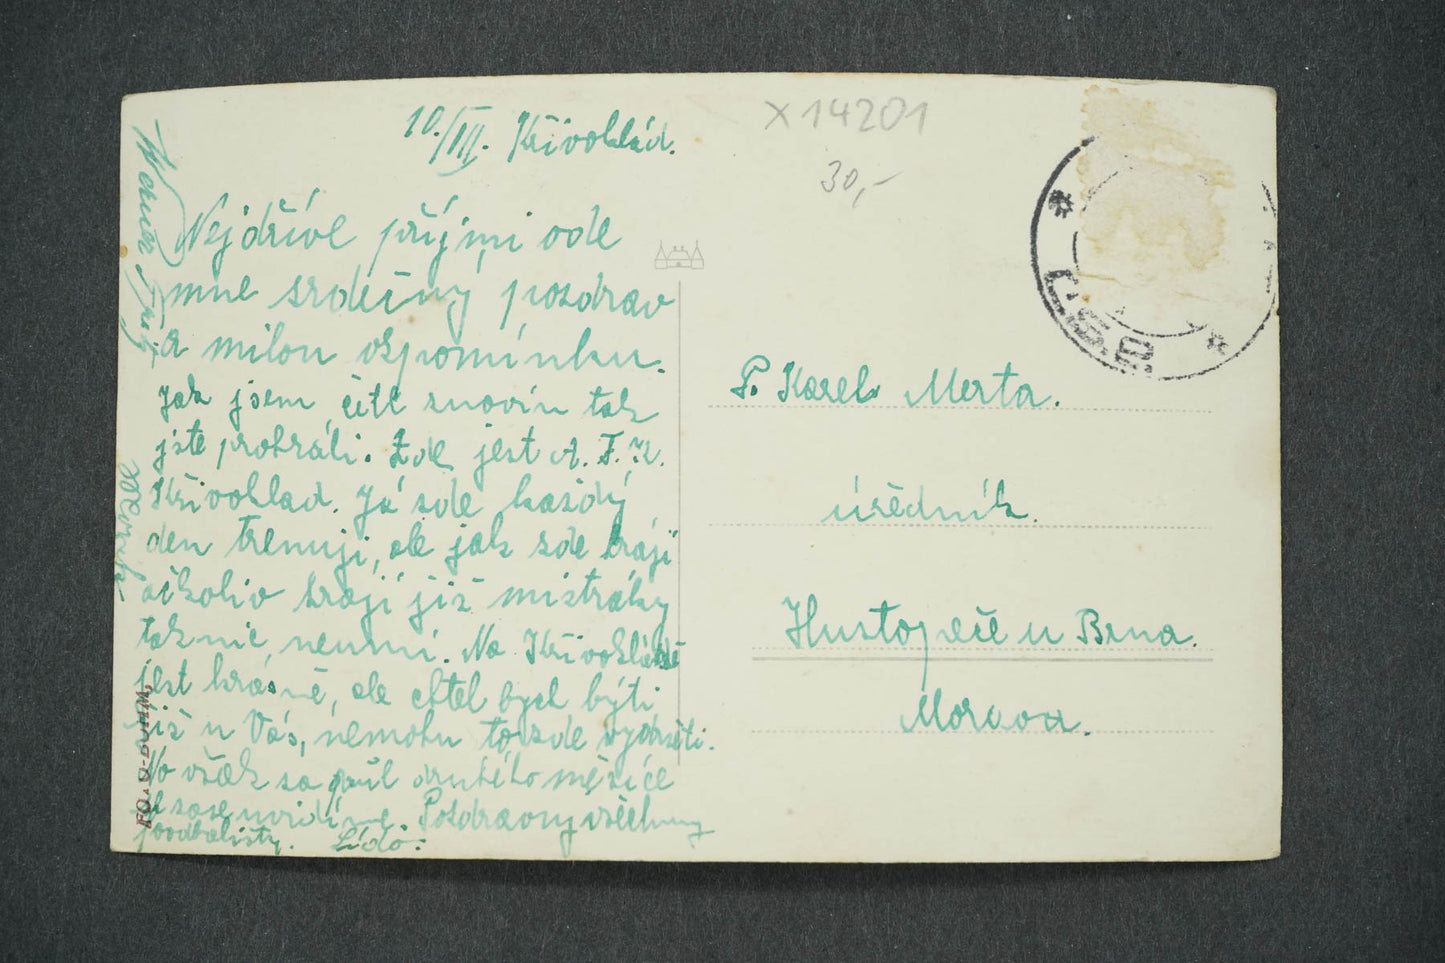 10./VII. Křivoklád.
Nejdříve příjmi ode
mne srdečný pozdrav
a milou vzpomínku.
Jak jsem četl z novin tak
jste prohráli. Zde jest A. F. K.
Křivoklad. Já zde každý
den trenuji, ale jak zde hrájí
ačkoliv hrájí již mistráky
tak nic neumí. Na Křivokládě
jest krásně, ale chtel bych býti
již u Vás, nemohu to zde vydržeti.
No však za půl druhého měsíce
se zase uvidíme. Pozdravuj všechny
foodbalisty. Lído.
X14201
30,-
P. Karel Merta.
úředník.
Hustopeče u Brna.
Morava.